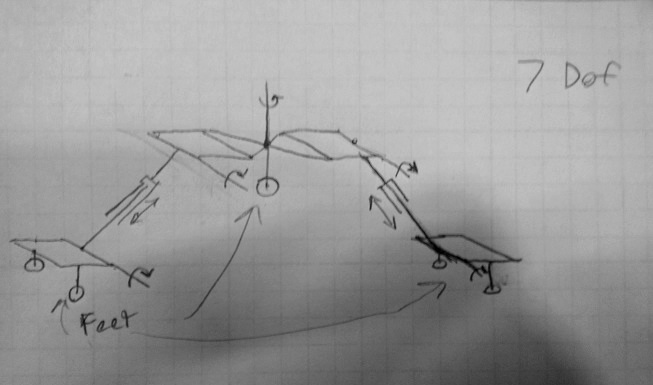 7 Dof
Feet